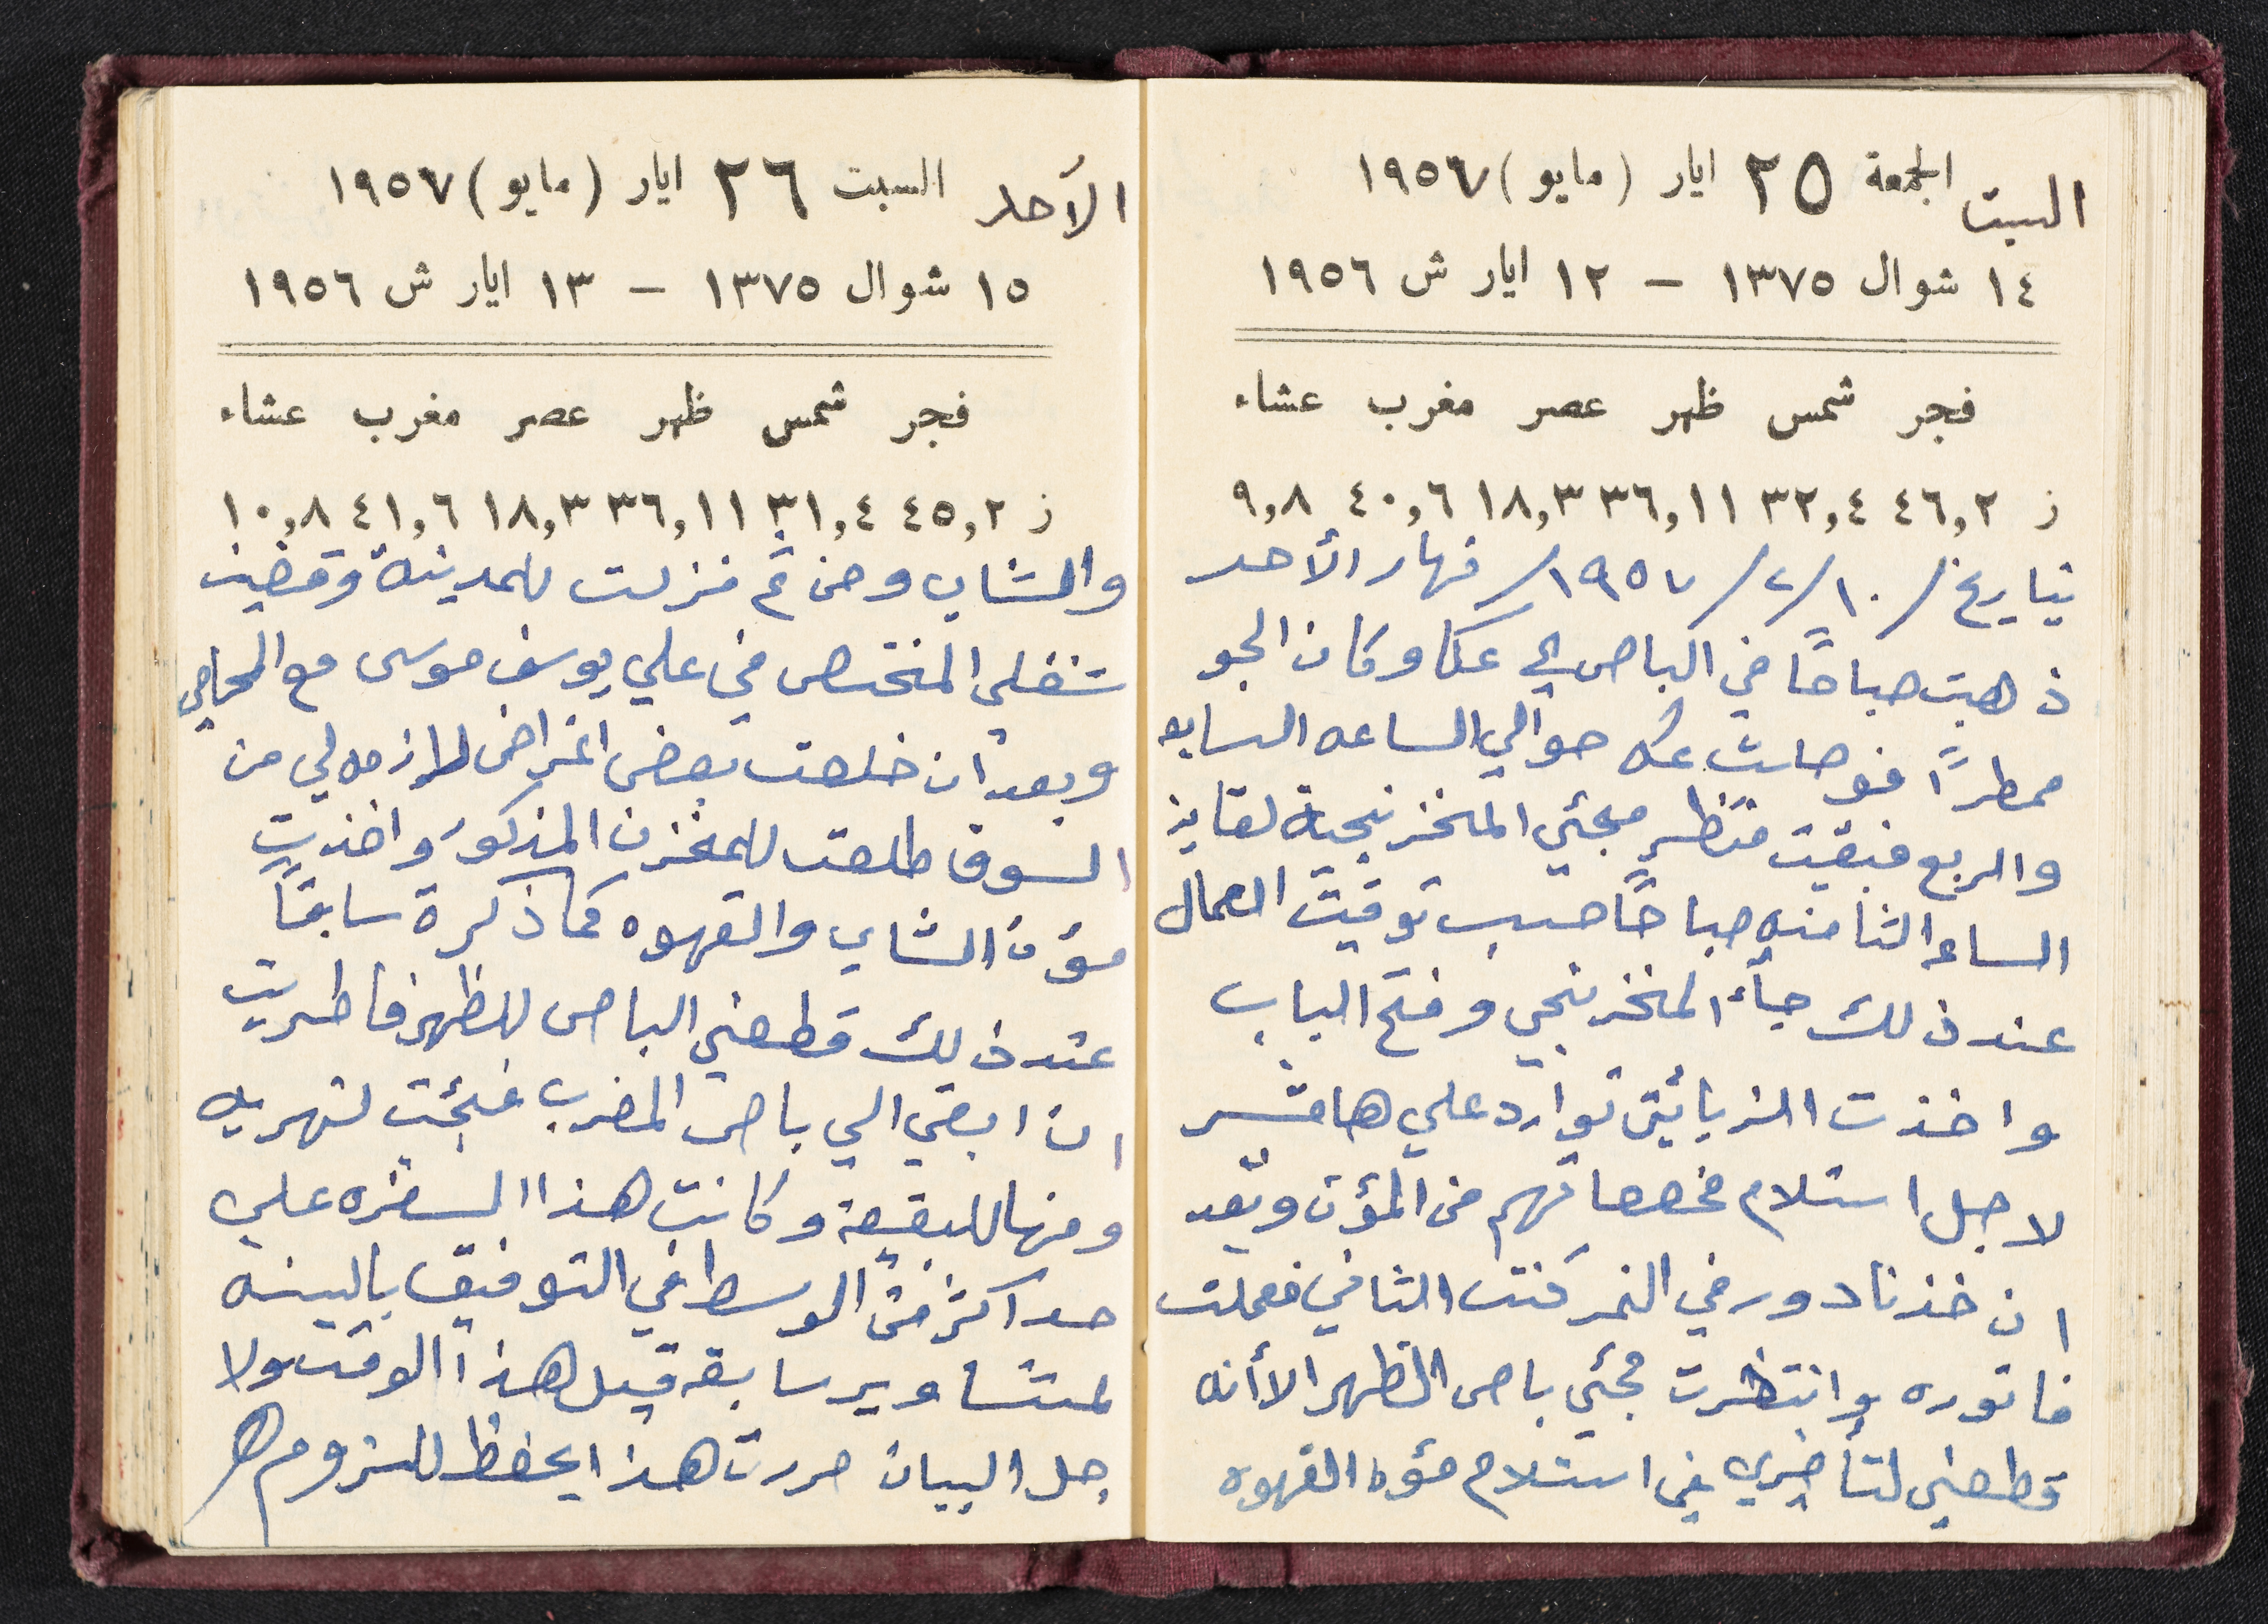 السبت الجمعة ٢٥ ايار (مايو) ١٩٥٧
١٤ شوال ١٣٧٥ – ١٢ ايار ش ١٩٥٦
فجر شمس ظهر عصر مغرب عشاء
ز ٤٦,٢ ٣٢,٤ ٣٦,١١ ١٨,٣ ٤٠,٦ ٩,٨
بتاريخ /١٠/٢/١٩٥٧/ نهار الأحد
ذهبت صباحًا في الباص الى عكا وكان الجو
ممطرًا فوصلت عكه حوالي الساعه السابعه
والربع فبقيت منتظر مجئي المخزنجية لغاية
الساعه الثامنه صباحًا حسب توقيت العمال
عند ذلك جآء المخزنجي وفتح الباب
واخذت الزبائين توارد علي هامشر
لاجل استلام مخصصاتهم من المؤن وبعد
ان خذنا دور في النمر كنت الثاني فعملت
فاتوره وانتظرت مجئي باص الظهر الأأنه
قطعني لتأخيري في استلام مؤنة القهوه
الأحد السبت ٢٦ ايار (مايو) ١٩٥٧
١٥ شوال ١٣٧٥ – ١٣ ايار ش ١٩٥٦
فجر شمس ظهر عصر مغرب عشاء
ز ٤٥,٢ ٣١,٤ ٣٦,١١ ١٨,٣ ٤١,٦ ١٠,٨
والشاي ومن ثم نزلت للمدينة وقضيت
شغلي المختص في علي يوسف موسى مع المحامي
وبعد ان خلصت بعض اغراض لازمه لي من
السوق طلعت للمخزن المذكور واخذت
مؤن الشاي والقهوه كما ذكرة سابقًا
عند ذلك قطعني الباص للظهر فاطريت
ان ابقي الي باص المغرب فجئت لنهريه
ومنها للبقيعة وكانت هذا السفره علي
حد اكثر من الوسط في التوفيق بالبينه
لمشاوير سابقه قبل هذا الوقت ولا
جل البيان حررت هذا يحفظ للزوم هـ